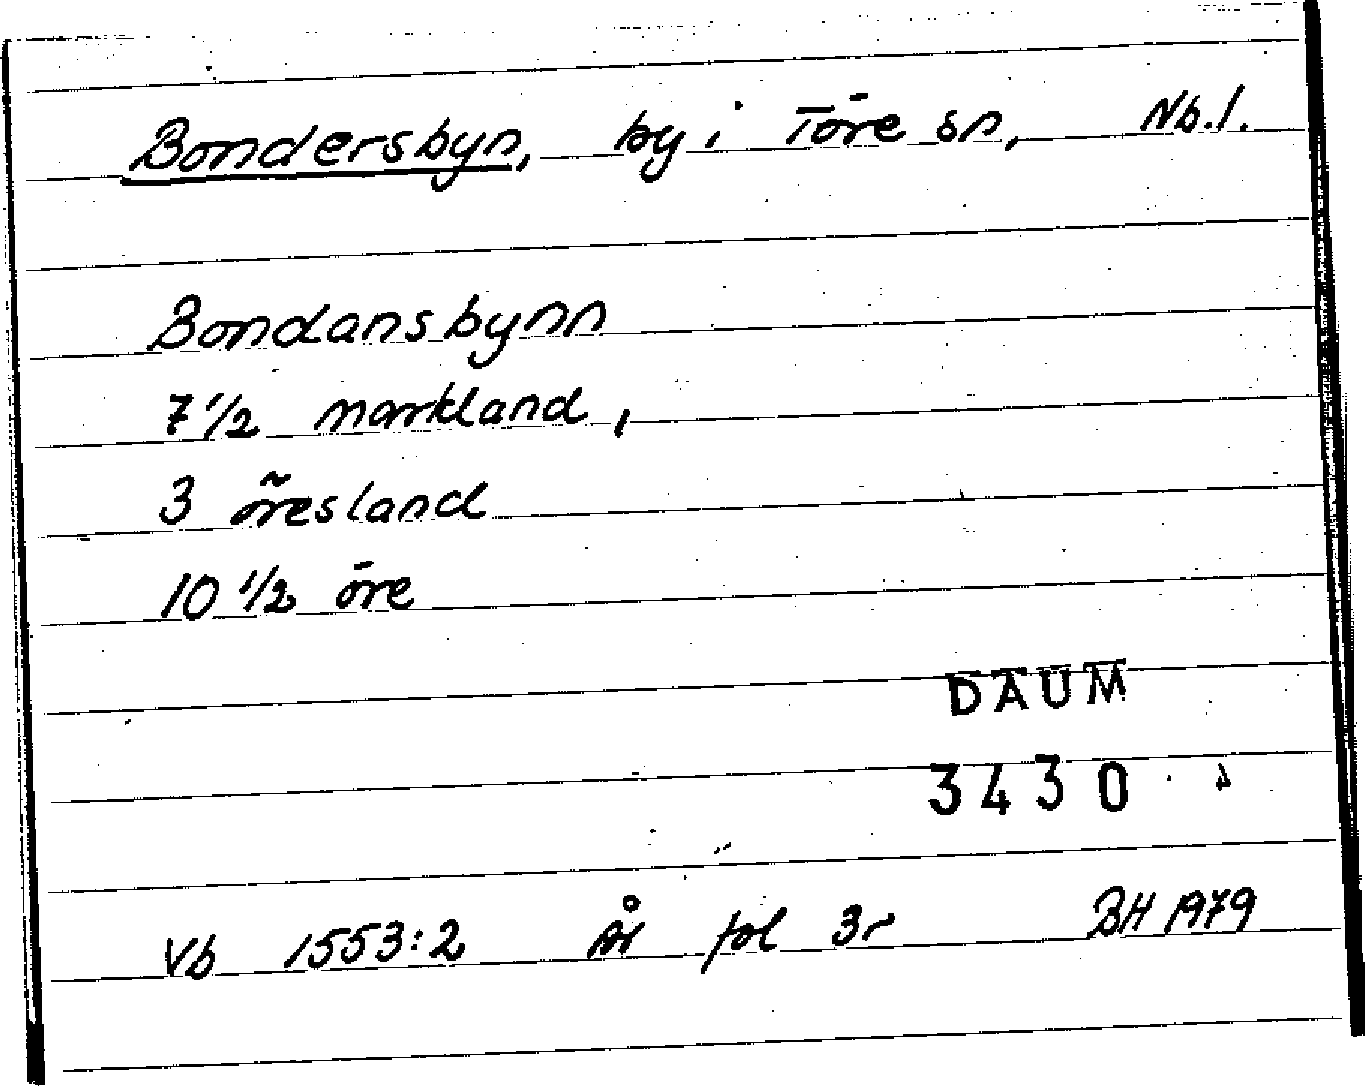 Bondersbyn, by i Töre sn, Nb.l.
Bondansbynn
7 1/2 markland,
3 öresland
10 1/2 öre
DAUM
3430
Vb 1553:2 år fol 3r BH 1979